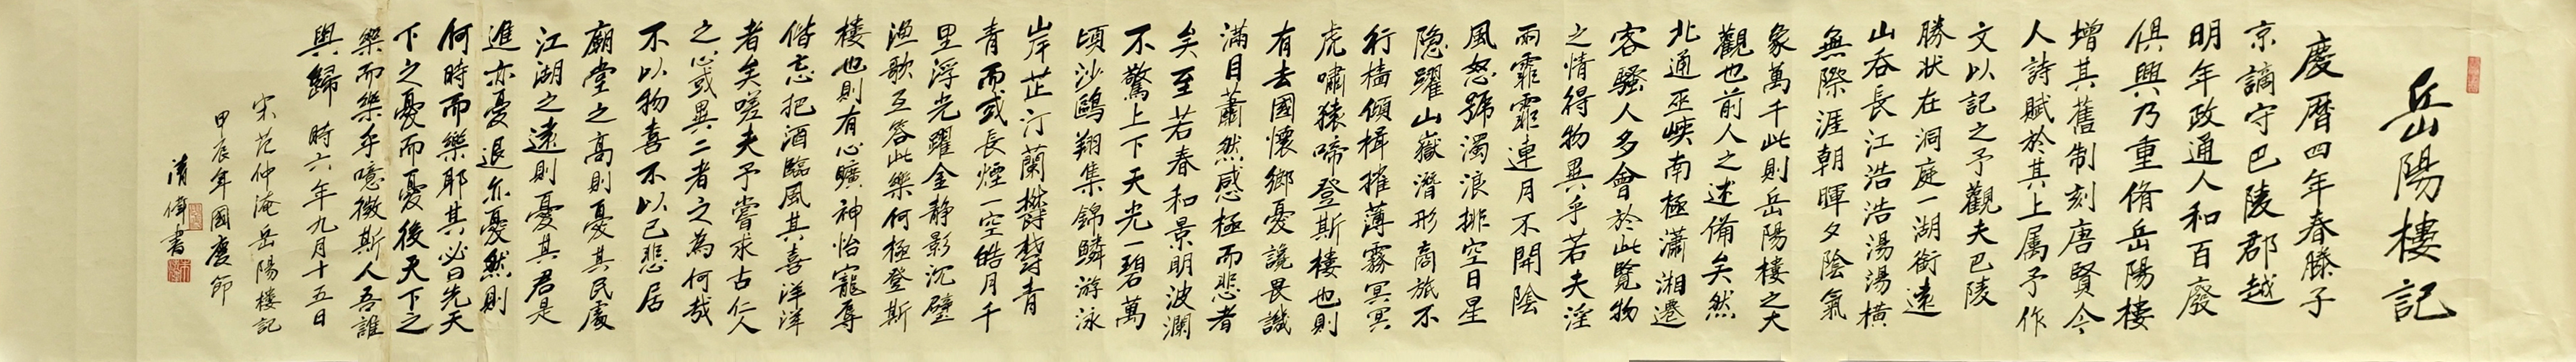 岳陽樓記
慶曆四年春滕子
京謫守巴陵郡越
明年政通人和百廢
俱興乃重脩岳陽樓
增其舊制刻唐賢今
人詩賦於其上属予作
文以記之予觀夫巴陵
勝状在洞庭一湖銜遠
山吞長江浩浩湯湯橫
無際涯朝暉夕陰氣
象萬千此則岳陽樓之大
觀也前人之述備矣然
北通巫峽南極瀟湘遷
客騷人多會於此覽物
之情得物異乎若夫淫
雨霏霏連月不開陰
風怒號濁浪排空日星
隐躍山嶽潛形商旅不
行檣傾楫摧薄霧冥冥
虎嘯猿啼登斯樓也則
有去國懷鄉憂讒畏譏
滿目蕭然感極而悲者
矣至若春和景明波瀾
不驚上下天光一碧萬
頃沙鷗翔集錦鱗游泳
岸芷汀蘭欝欝青
青而或長煙一空皓月千
里浮光躍金静影沉璧
漁歌互答此樂何極登斯
樓也則有心曠神怡寵辱
偕忘把酒臨風其喜洋洋
者矣嗟夫予嘗求古仁人
之心或異二者之為何哉
不以物喜不以己悲居
廟堂之高則憂其民處
江湖之遠則憂其君是
進亦憂退亦憂然則
何時而樂耶其必曰先天
下之憂而憂後天下之
樂而樂乎噫微斯人吾誰
與歸 時六年九月十五日
宋范仲淹岳陽樓記
甲辰年國慶節
清偉書